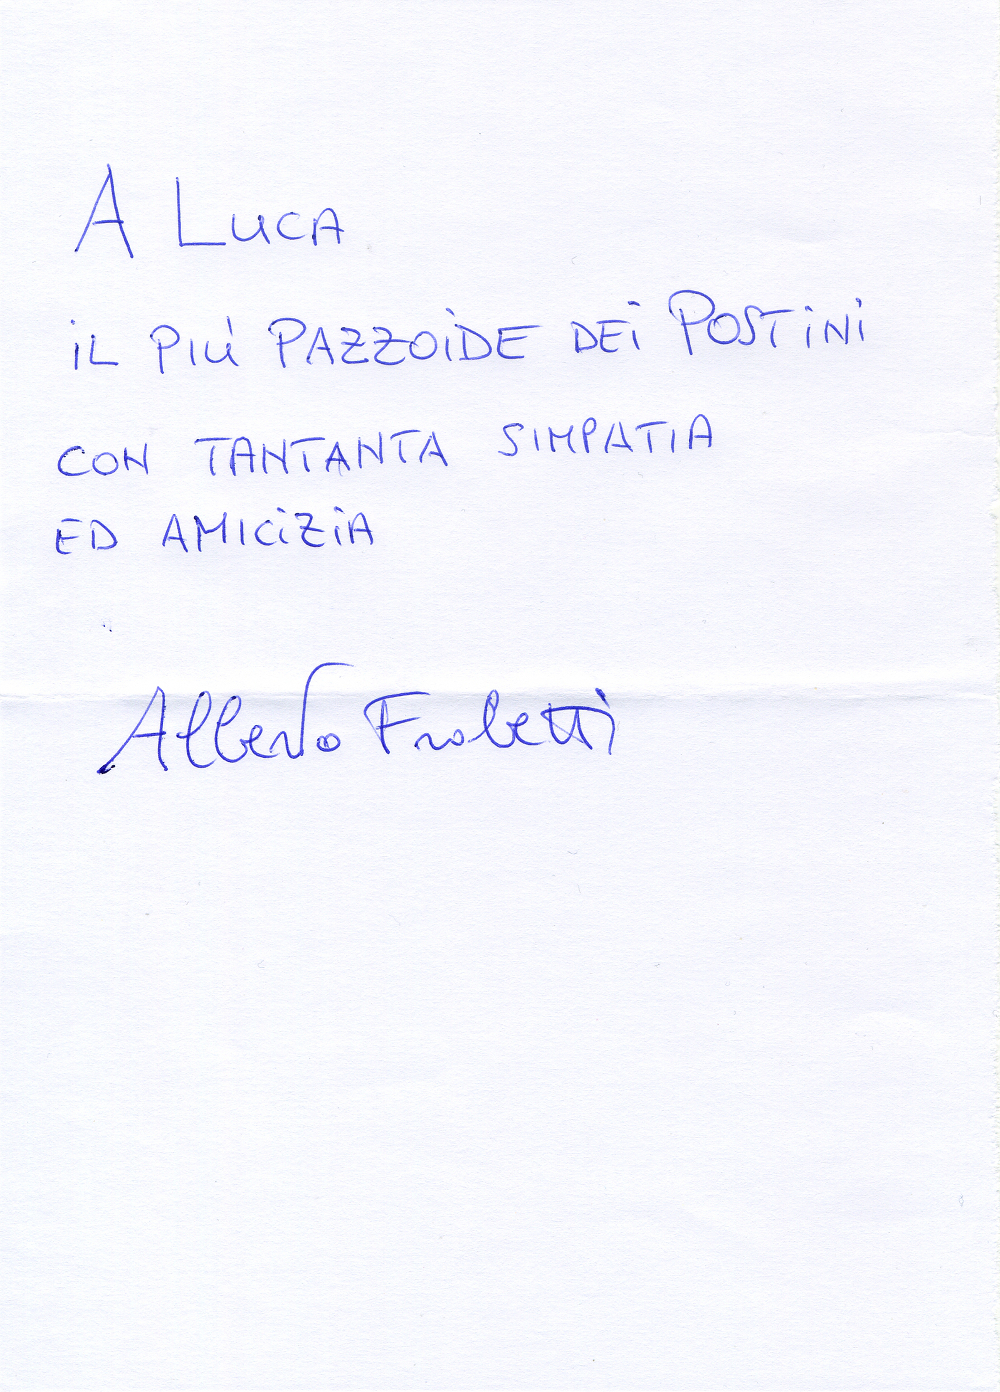 A LUCA
iL PIÙ PAZZOIDE DEI POSTINI
CON TANTANTA SIMPATIA
ED AMICIZIA
Alberto Frobetti